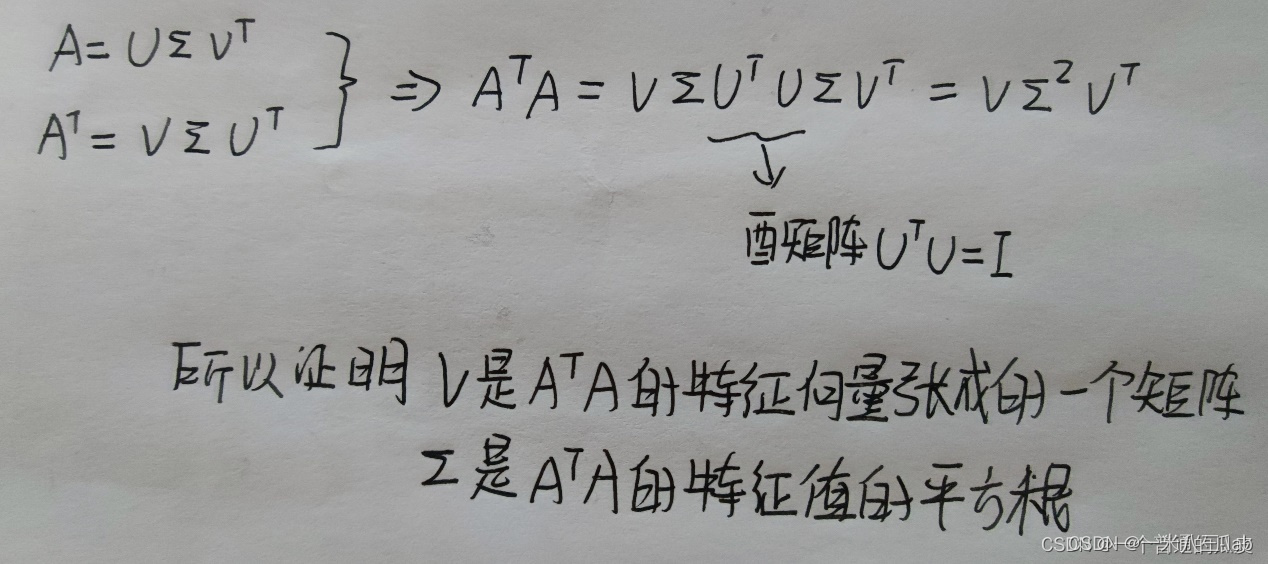 A = UΣV^T
A^T = VΣU^T
} ⇒ A^T A = VΣU^T UΣV^T = VΣ²V^T
酉矩阵 U^T U = I
所以证明 V是A^T A的特征向量张成的一个矩阵
Σ是A^T A的特征值的平方根